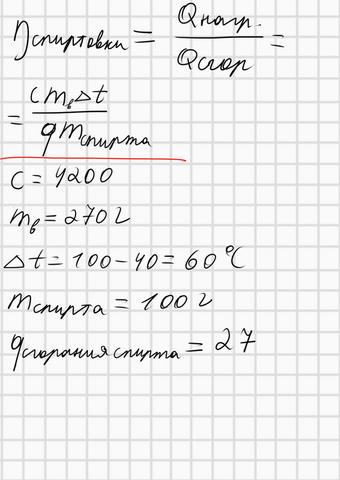 ηспиртовки = Qнагр. / Qсгор =
= cmвΔt / qmспирта
c = 4200
mв = 270г
Δt = 100 - 40 = 60°C
mспирта = 100г
qсгорания спирта = 27